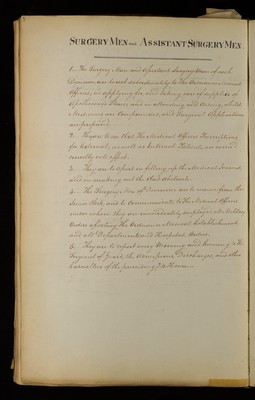 SURGERY MEN and ASSISTANT SURGERY MEN.
1. The Surgery Men and Assistant Surgery Men of each
Division, are to act subordinately to the Ordnance Medical
Officers, in applying for, and taking care of supplies of
and in attending and acting, whilst
Medicines are Compounded, and Surgical Applications
are prepared.
2. They are to see that the Medical Officers Prescriptions
for External, as well as Internal Patients, are carried
into effect.
3. They are to assist in filling up the Medical Journals
and in making out the Sick
4. The Surgery Men of Divisions are to receive from the
and to communicate to the Medical Officers
under whom they are immediately employed, all Military
Orders affecting the Ordnance Medical Establishment
and all Departmental and Hospital Orders.
5. They are to report every Morning and Evening to the
Surgeon of the Admissions, Discharges, and other
of the preceding 24 Hours.